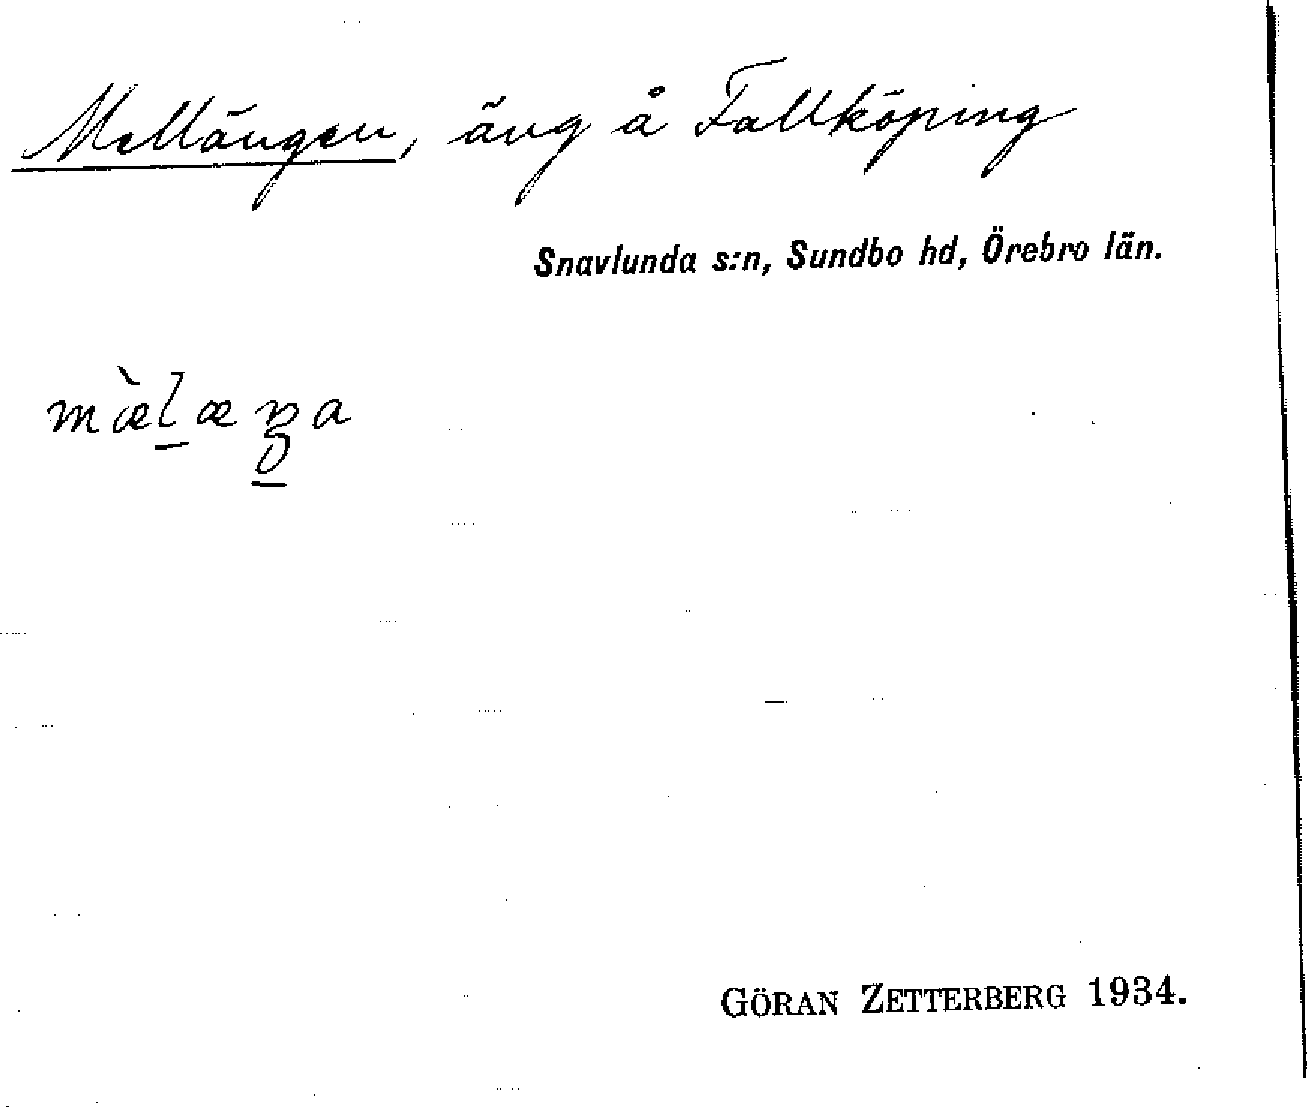 Mellängen, äng å Falköping
Snavlunda s:n, Sundbo hd, Örebro län.
mæ̀l̲æŋ̲a
GÖRAN ZETTERBERG 1934.